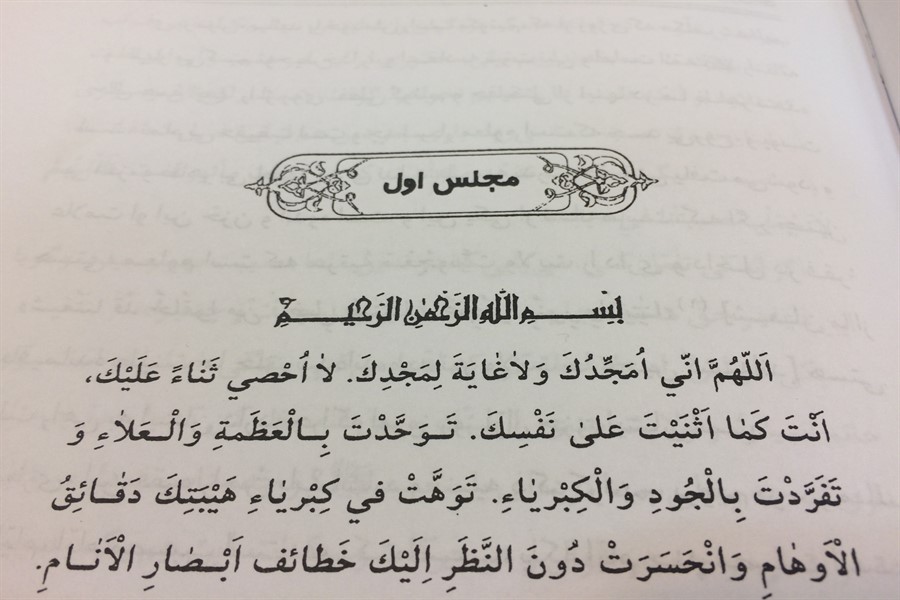 مجلس اول
بِسْمِ اللهِ الرَّحْمٰنِ الرَّحِيمِ
اَللّٰهُمَّ اِنّي اُمَجِّدُكَ وَلاٰغٰايَةَ لِمَجْدِكَ. لاٰ اُحْصي ثَنٰاءً عَلَيْكَ،
اَنْتَ كَمٰا اَثْنَيْتَ عَلىٰ نَفْسِكَ. تَوَحَّدْتَ بِالْعَظَمَةِ وَالْعَلاٰءِ وَ
تَفَرَّدْتَ بِالْجُودِ وَالْكِبْرِيٰاءِ. تَوَهَّتْ في كِبْرِيٰاءِ هَيْبَتِكَ دَقٰائِقُ
الْاَوهٰامِ وَانْحَسَرَتْ دُونَ النَّظَرِ اِلَيْكَ خَطٰائف اَبْصٰارِ الْاَنٰامِ.